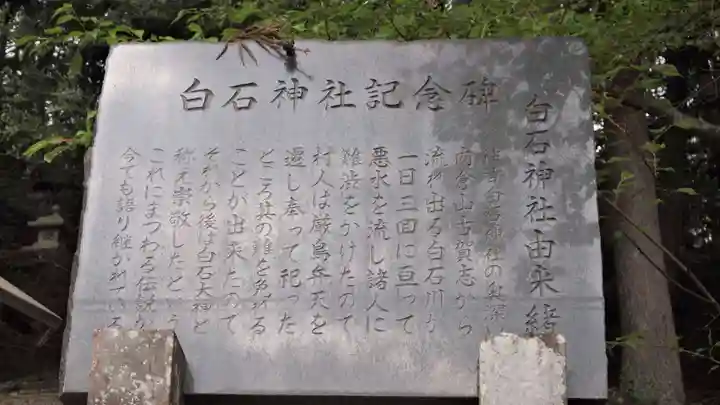 白石神社記念碑
白石神社由来緒
白石神社の奥深い
高倉山古賀志から
流れ出る白石川が
一日三回に亘って
悪水を流し諸人に
難渋をかけたので
村人は厳島弁天を
遷し奉って祀った
ところ其の難を免れる
ことが出来たので
それから後は白石大神と
称え崇敬したという
これにまつわる伝説が
今でも語り継がれている